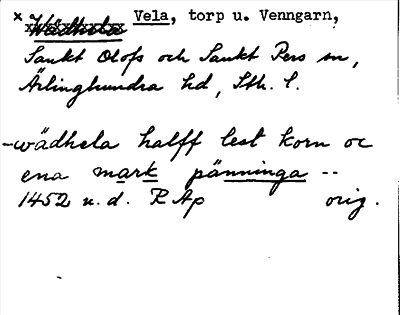 x Wädhela Vela, torp u. Venngarn,
Sankt Olofs och Sankt Pers sn,
Ärlinghundra hd, Sth. l.
-wädhela halff lest korn oc
ena mark pänninga --
1452 u. d. RAp orig.